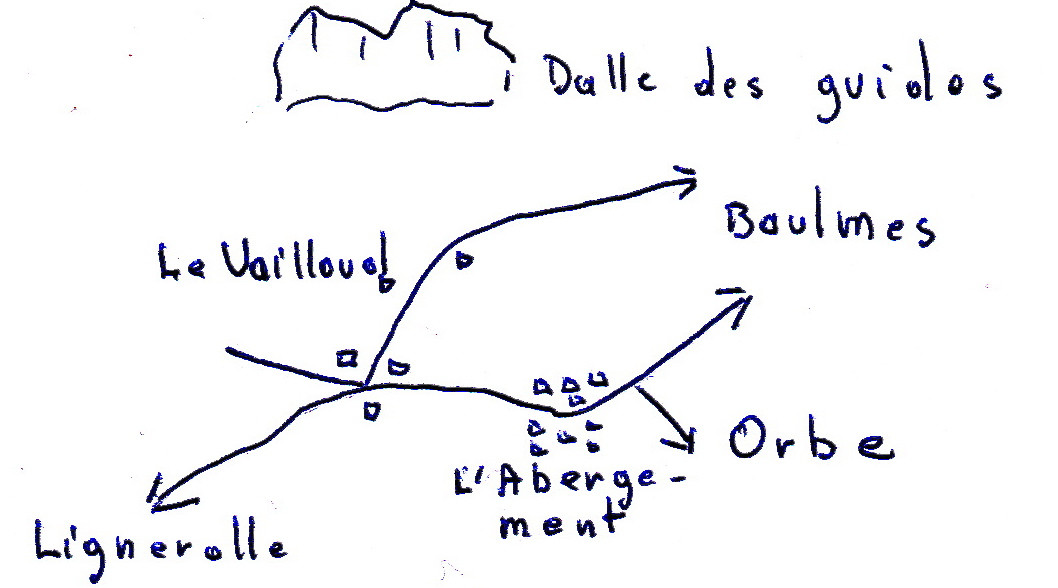 Dalle des guidos
Baulmes
Le Vailloud
Orbe
L'Aberge-
ment
Lignerolle